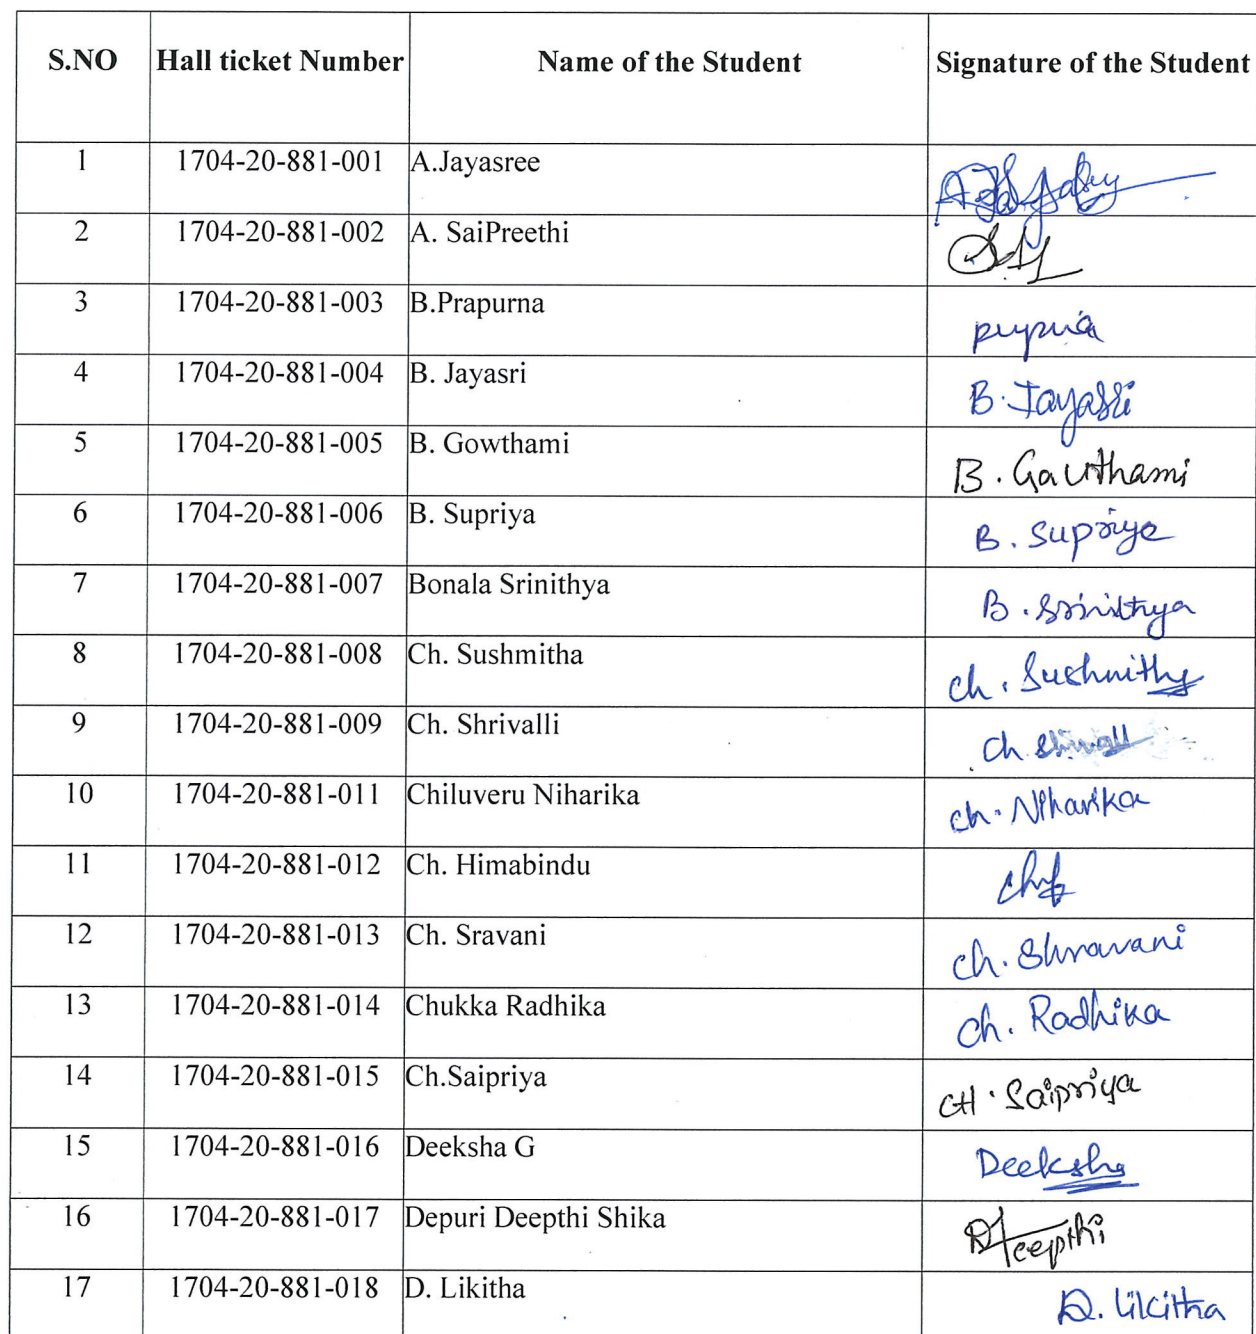 S.NO Hall ticket Number Name of the Student Signature of the Student
1 1704-20-881-001 A.Jayasree
2 1704-20-881-002 A. SaiPreethi
3 1704-20-881-003 B.Prapurna
4 1704-20-881-004 B. Jayasri B. Jayasri
5 1704-20-881-005 B. Gowthami B. Gauthami
6 1704-20-881-006 B. Supriya B. Supriya
7 1704-20-881-007 Bonala Srinithya B. Srinithya
8 1704-20-881-008 Ch. Sushmitha Ch. Sushmitha
9 1704-20-881-009 Ch. Shrivalli Ch
10 1704-20-881-011 Chiluveru Niharika Ch. Niharika
11 1704-20-881-012 Ch. Himabindu
12 1704-20-881-013 Ch. Sravani Ch. Shravani
13 1704-20-881-014 Chukka Radhika Ch. Radhika
14 1704-20-881-015 Ch.Saipriya CH. Saipriya
15 1704-20-881-016 Deeksha G Deeksha
16 1704-20-881-017 Depuri Deepthi Shika Deepthi
17 1704-20-881-018 D. Likitha D. Likitha